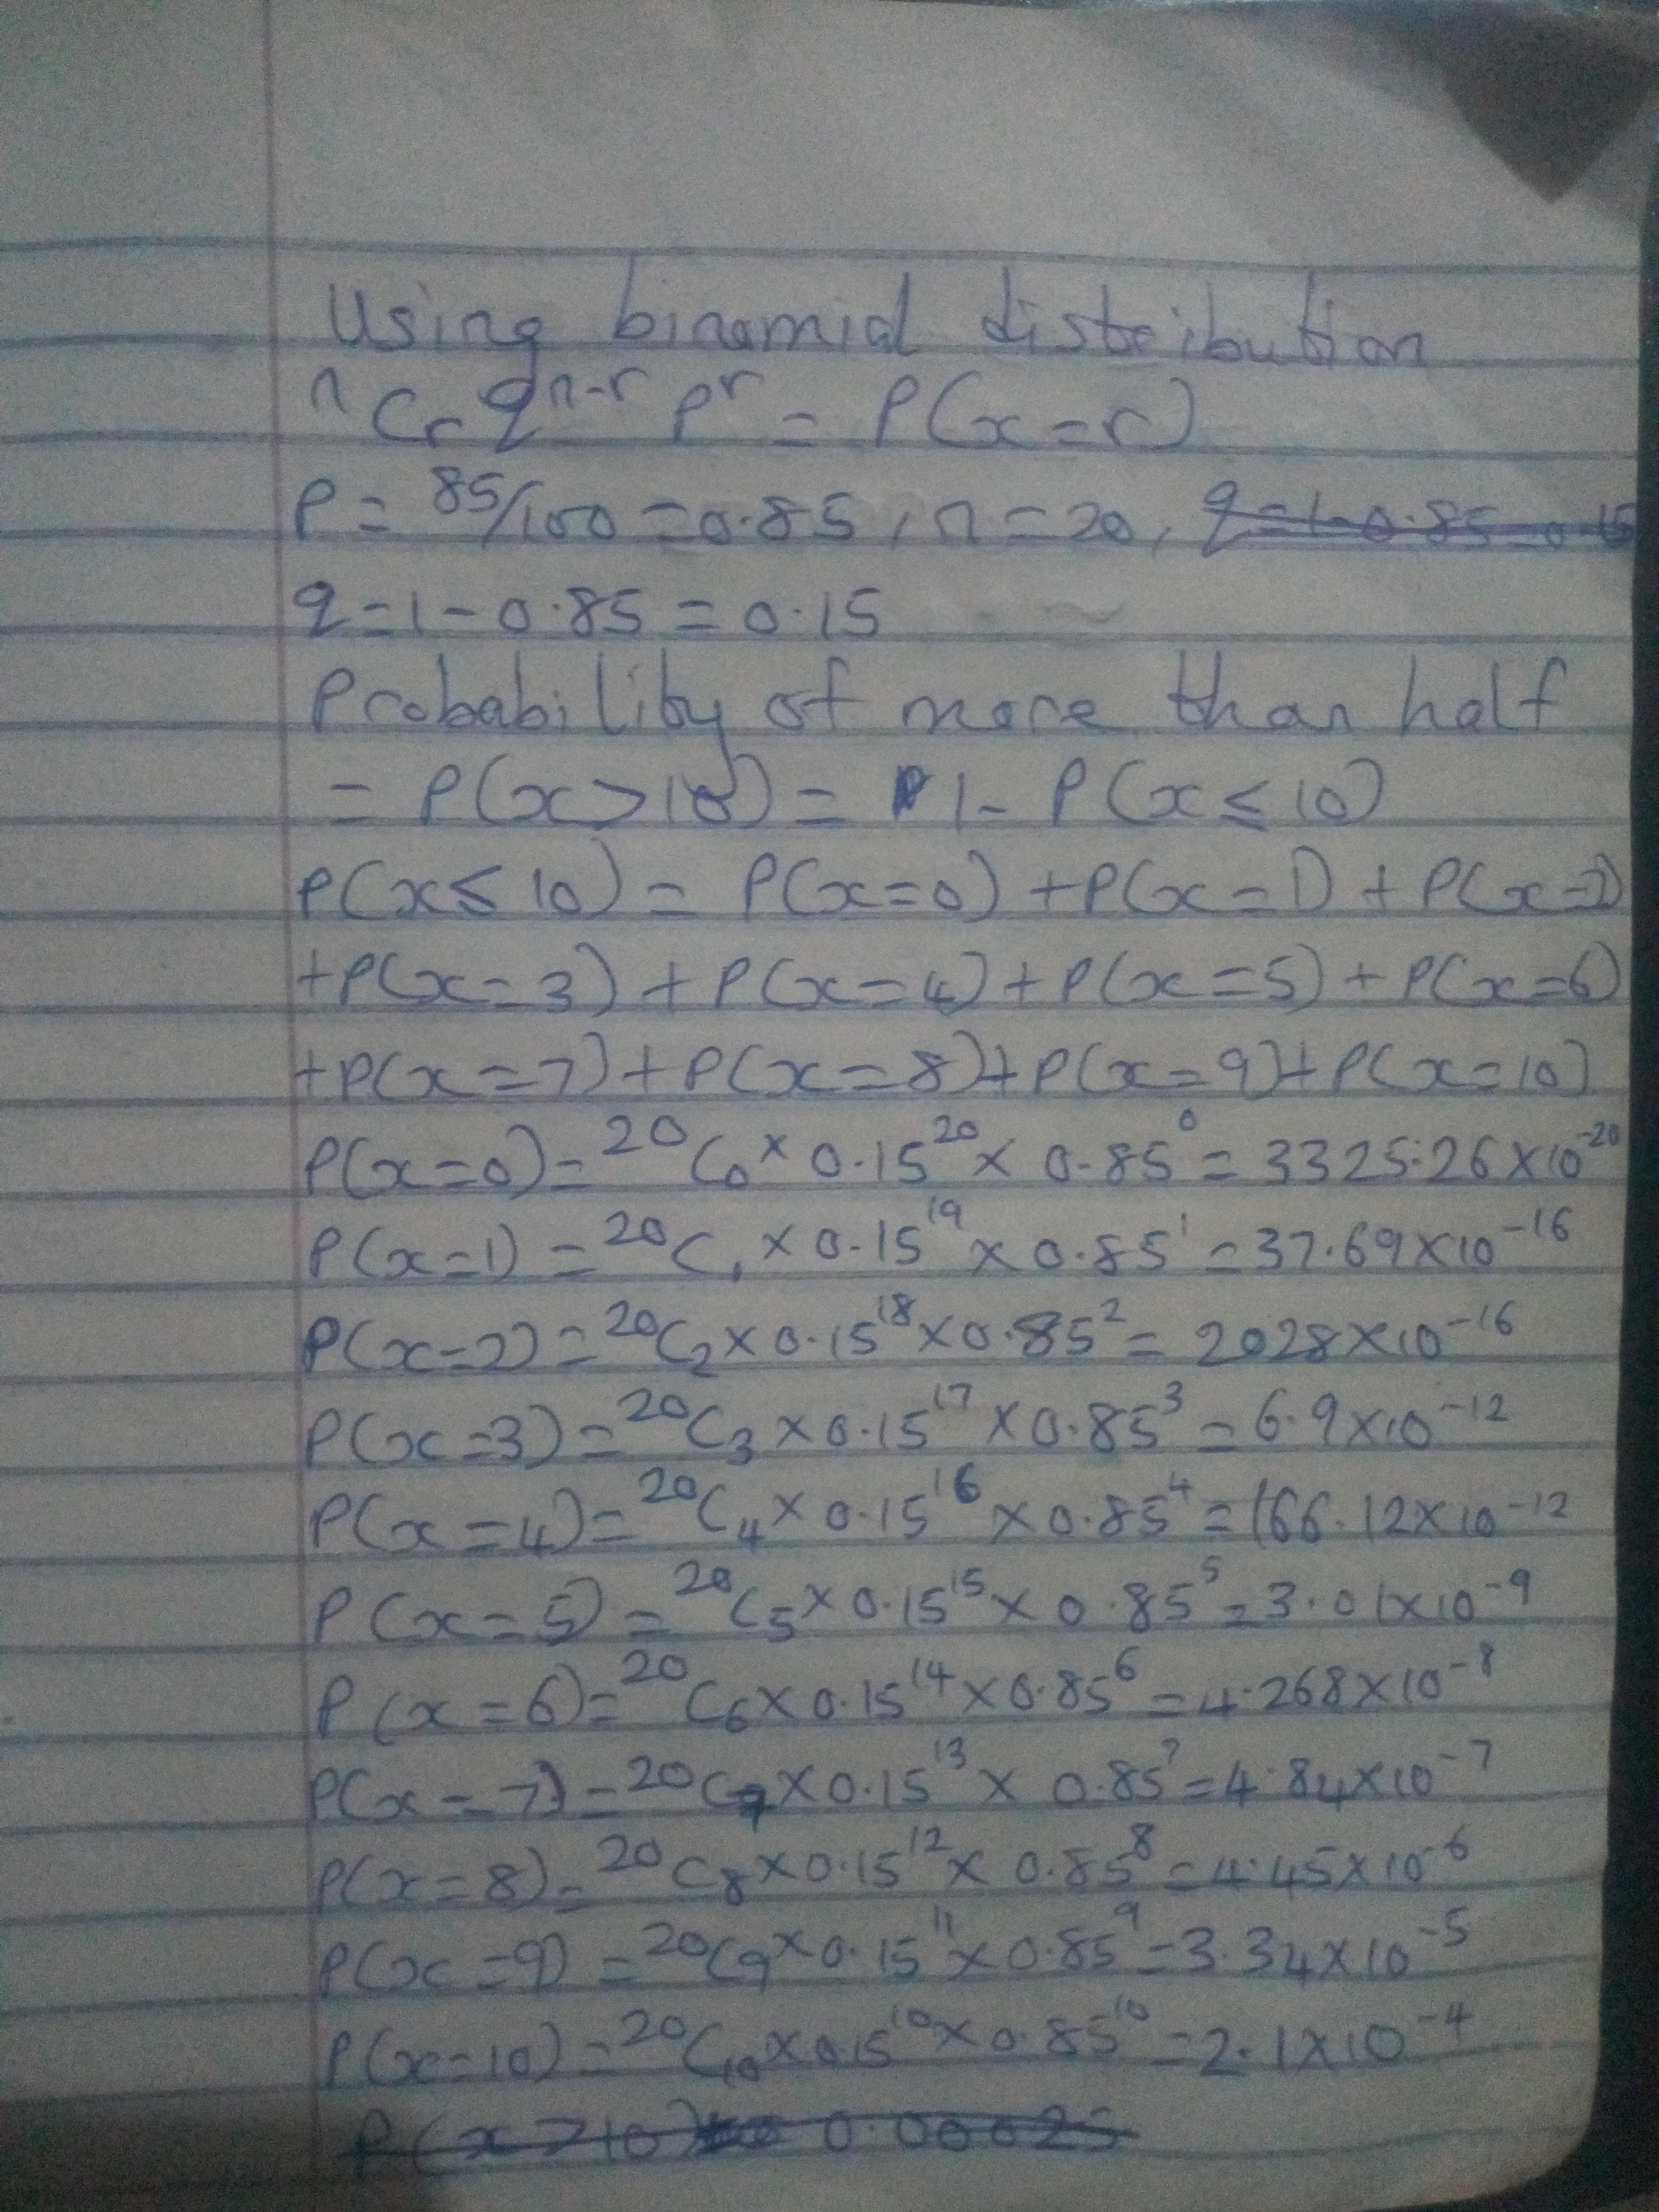 Using binomial distribution
ⁿCᵣ qⁿ⁻ʳ Pʳ = P(x=r)
P = 85/100 = 0.85, n = 20, q = 1-0.85 = 0.15
q = 1 - 0.85 = 0.15
Probability of more than half
= P(x>10) = 1 - P(x ≤ 10)
P(x ≤ 10) = P(x=0) + P(x=1) + P(x=2)
+ P(x=3) + P(x=4) + P(x=5) + P(x=6)
+ P(x=7) + P(x=8) + P(x=9) + P(x=10)
P(x=0) = ²⁰C₀ × 0.15²⁰ × 0.85⁰ = 3325.26 × 10⁻²⁰
P(x=1) = ²⁰C₁ × 0.15¹⁹ × 0.85¹ = 37.69 × 10⁻¹⁶
P(x=2) = ²⁰C₂ × 0.15¹⁸ × 0.85² = 2028 × 10⁻¹⁶
P(x=3) = ²⁰C₃ × 0.15¹⁷ × 0.85³ = 6.9 × 10⁻¹²
P(x=4) = ²⁰C₄ × 0.15¹⁶ × 0.85⁴ = 166.12 × 10⁻¹²
P(x=5) = ²⁰C₅ × 0.15¹⁵ × 0.85⁵ = 3.01 × 10⁻⁹
P(x=6) = ²⁰C₆ × 0.15¹⁴ × 0.85⁶ = 4.268 × 10⁻⁸
P(x=7) = ²⁰C₇ × 0.15¹³ × 0.85⁷ = 4.84 × 10⁻⁷
P(x=8) = ²⁰C₈ × 0.15¹² × 0.85⁸ = 4.45 × 10⁻⁶
P(x=9) = ²⁰C₉ × 0.15¹¹ × 0.85⁹ = 3.34 × 10⁻⁵
P(x=10) = ²⁰C₁₀ × 0.15¹⁰ × 0.85¹⁰ = 2.1 × 10⁻⁴
P(x>10) 0.00025